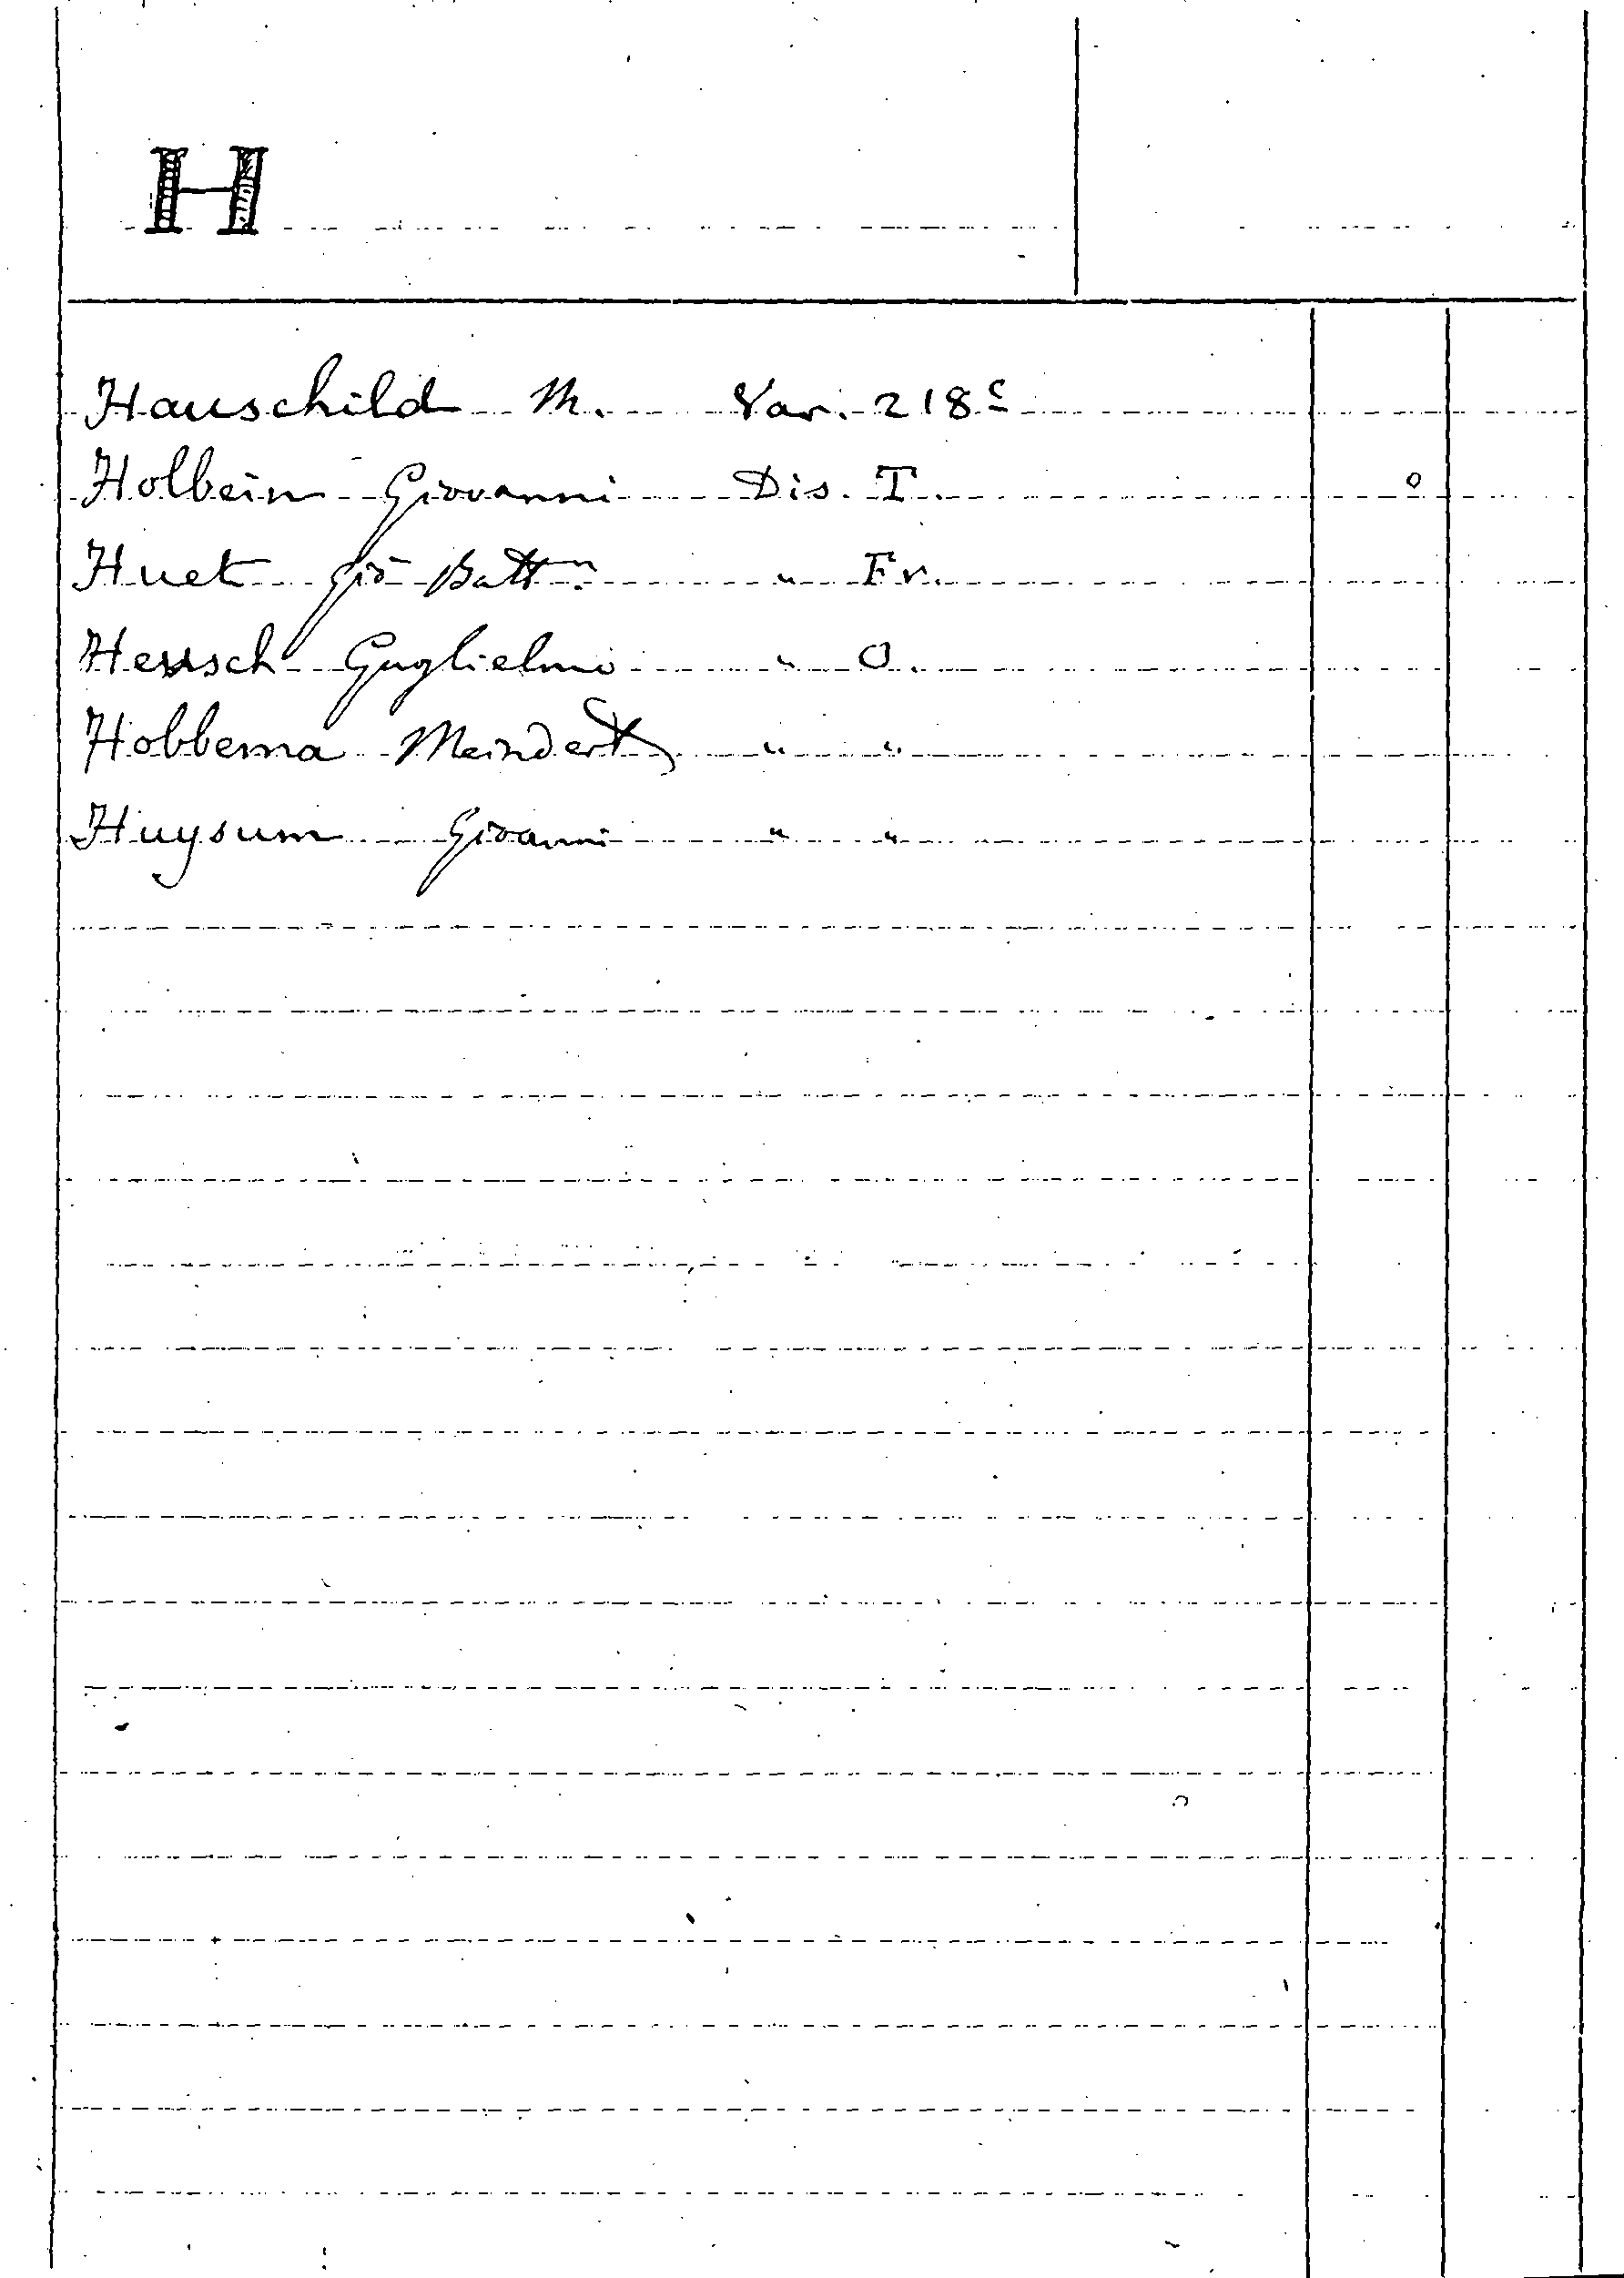 H
Hauschild M. Var. 218c
Holbein Giovanni Dis. T. o
Huet Giō Battā " Fr.
Guglielmo " O.
Hobbema Meindert " "
Huysum Giovanni " "